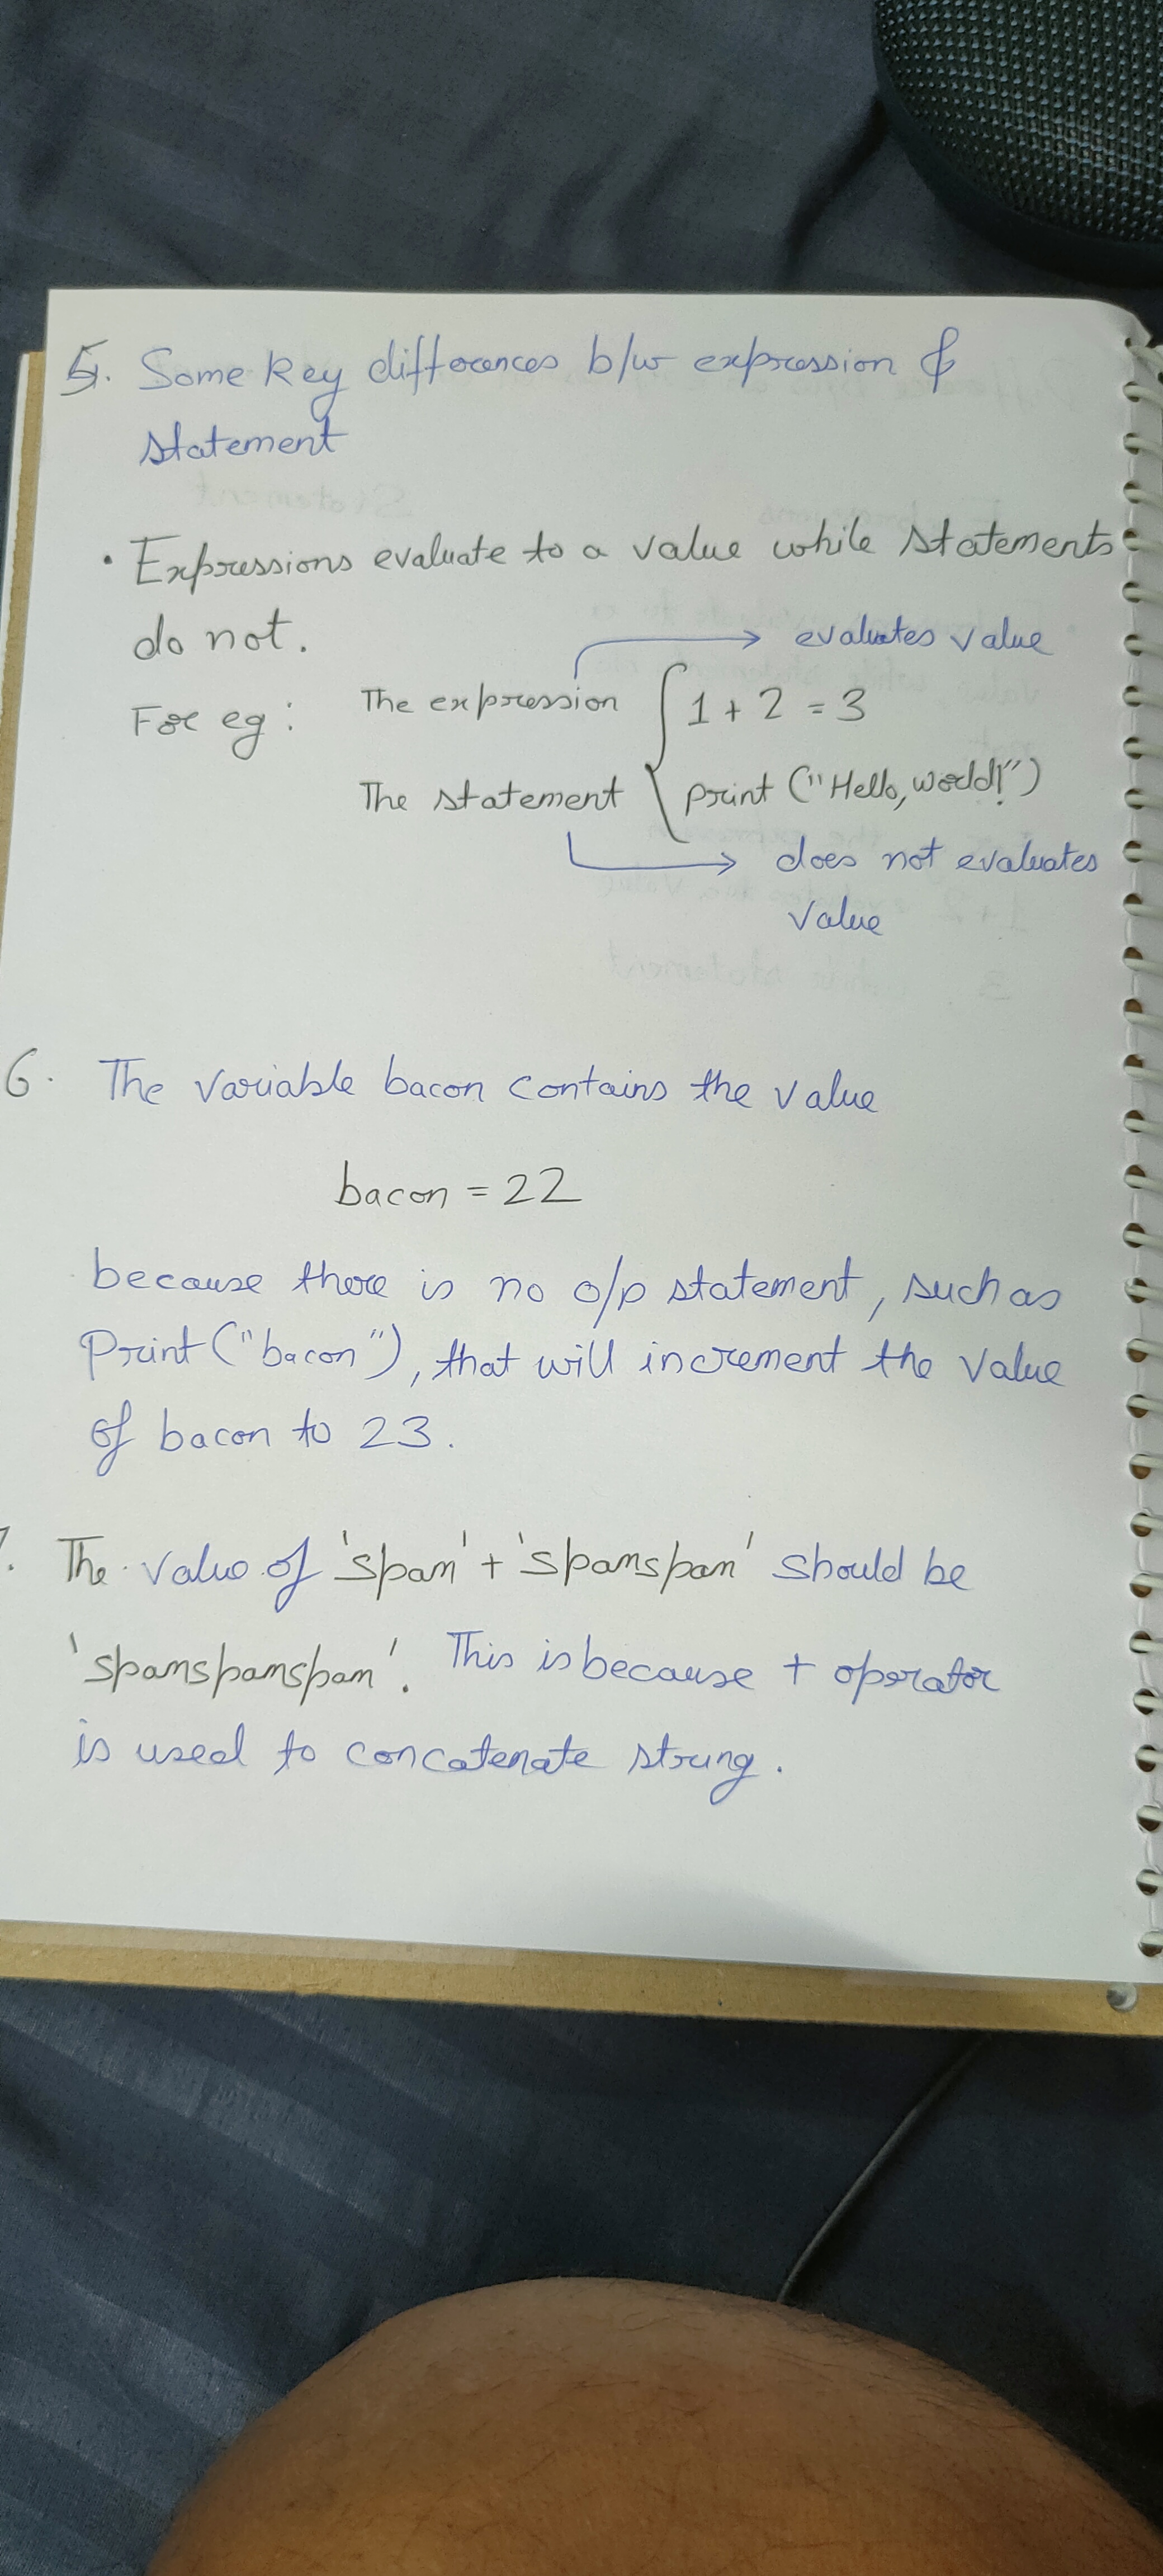 5. Some key differences b/w expression &
statement
• Expressions evaluate to a value while statements
do not.
→ evaluates value
For eg: The expression { 1 + 2 = 3
The statement print ("Hello, world!")
→ does not evaluates
value
6. The variable bacon contains the value
bacon = 22
because there is no o/p statement, such as
Print ("bacon"), that will increment the value
of bacon to 23.
. The value of 'spam' + 'spamspam' should be
'spamspamspam'. This is because + operator
is used to concatenate string.